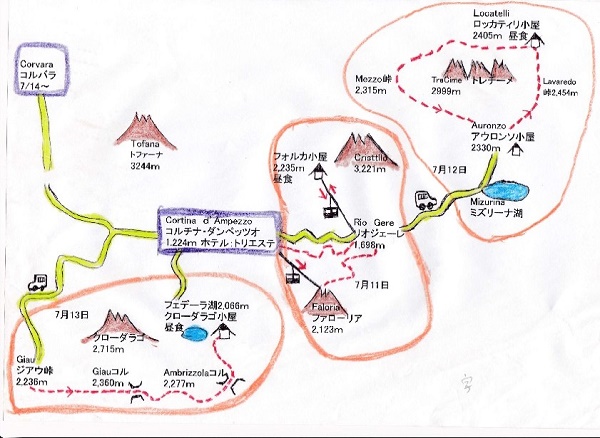 Corvara
コルバラ
7/14～
Tofana
トファーナ
3244m
Locatelli
ロッカティリ小屋
2405m 昼食
Mezzo峠
2,315m
TreCime トレチーメ
2999m
Lavaredo
峠2,454m
Auronzo
アウロンソ小屋
2330m
7月12日
Mizurina
ミズリーナ湖
フォルカ小屋
2,235m
昼食
3,221m
Rio Gere
リオジェーレ
1,698m
7月11日
Faloria
ファローリア
2,123m
Cortina d Ampezzo
コルチナ・ダンペッツオ
1,224m ホテル：トリエステ
7月13日
クローダラゴ
2,715m
フェデーラ湖2,066m
クローダラゴ小屋
昼食
Giau
ジアウ峠
2,236m
Giauコル
2,360m
Ambrizzolaコル
2,277m